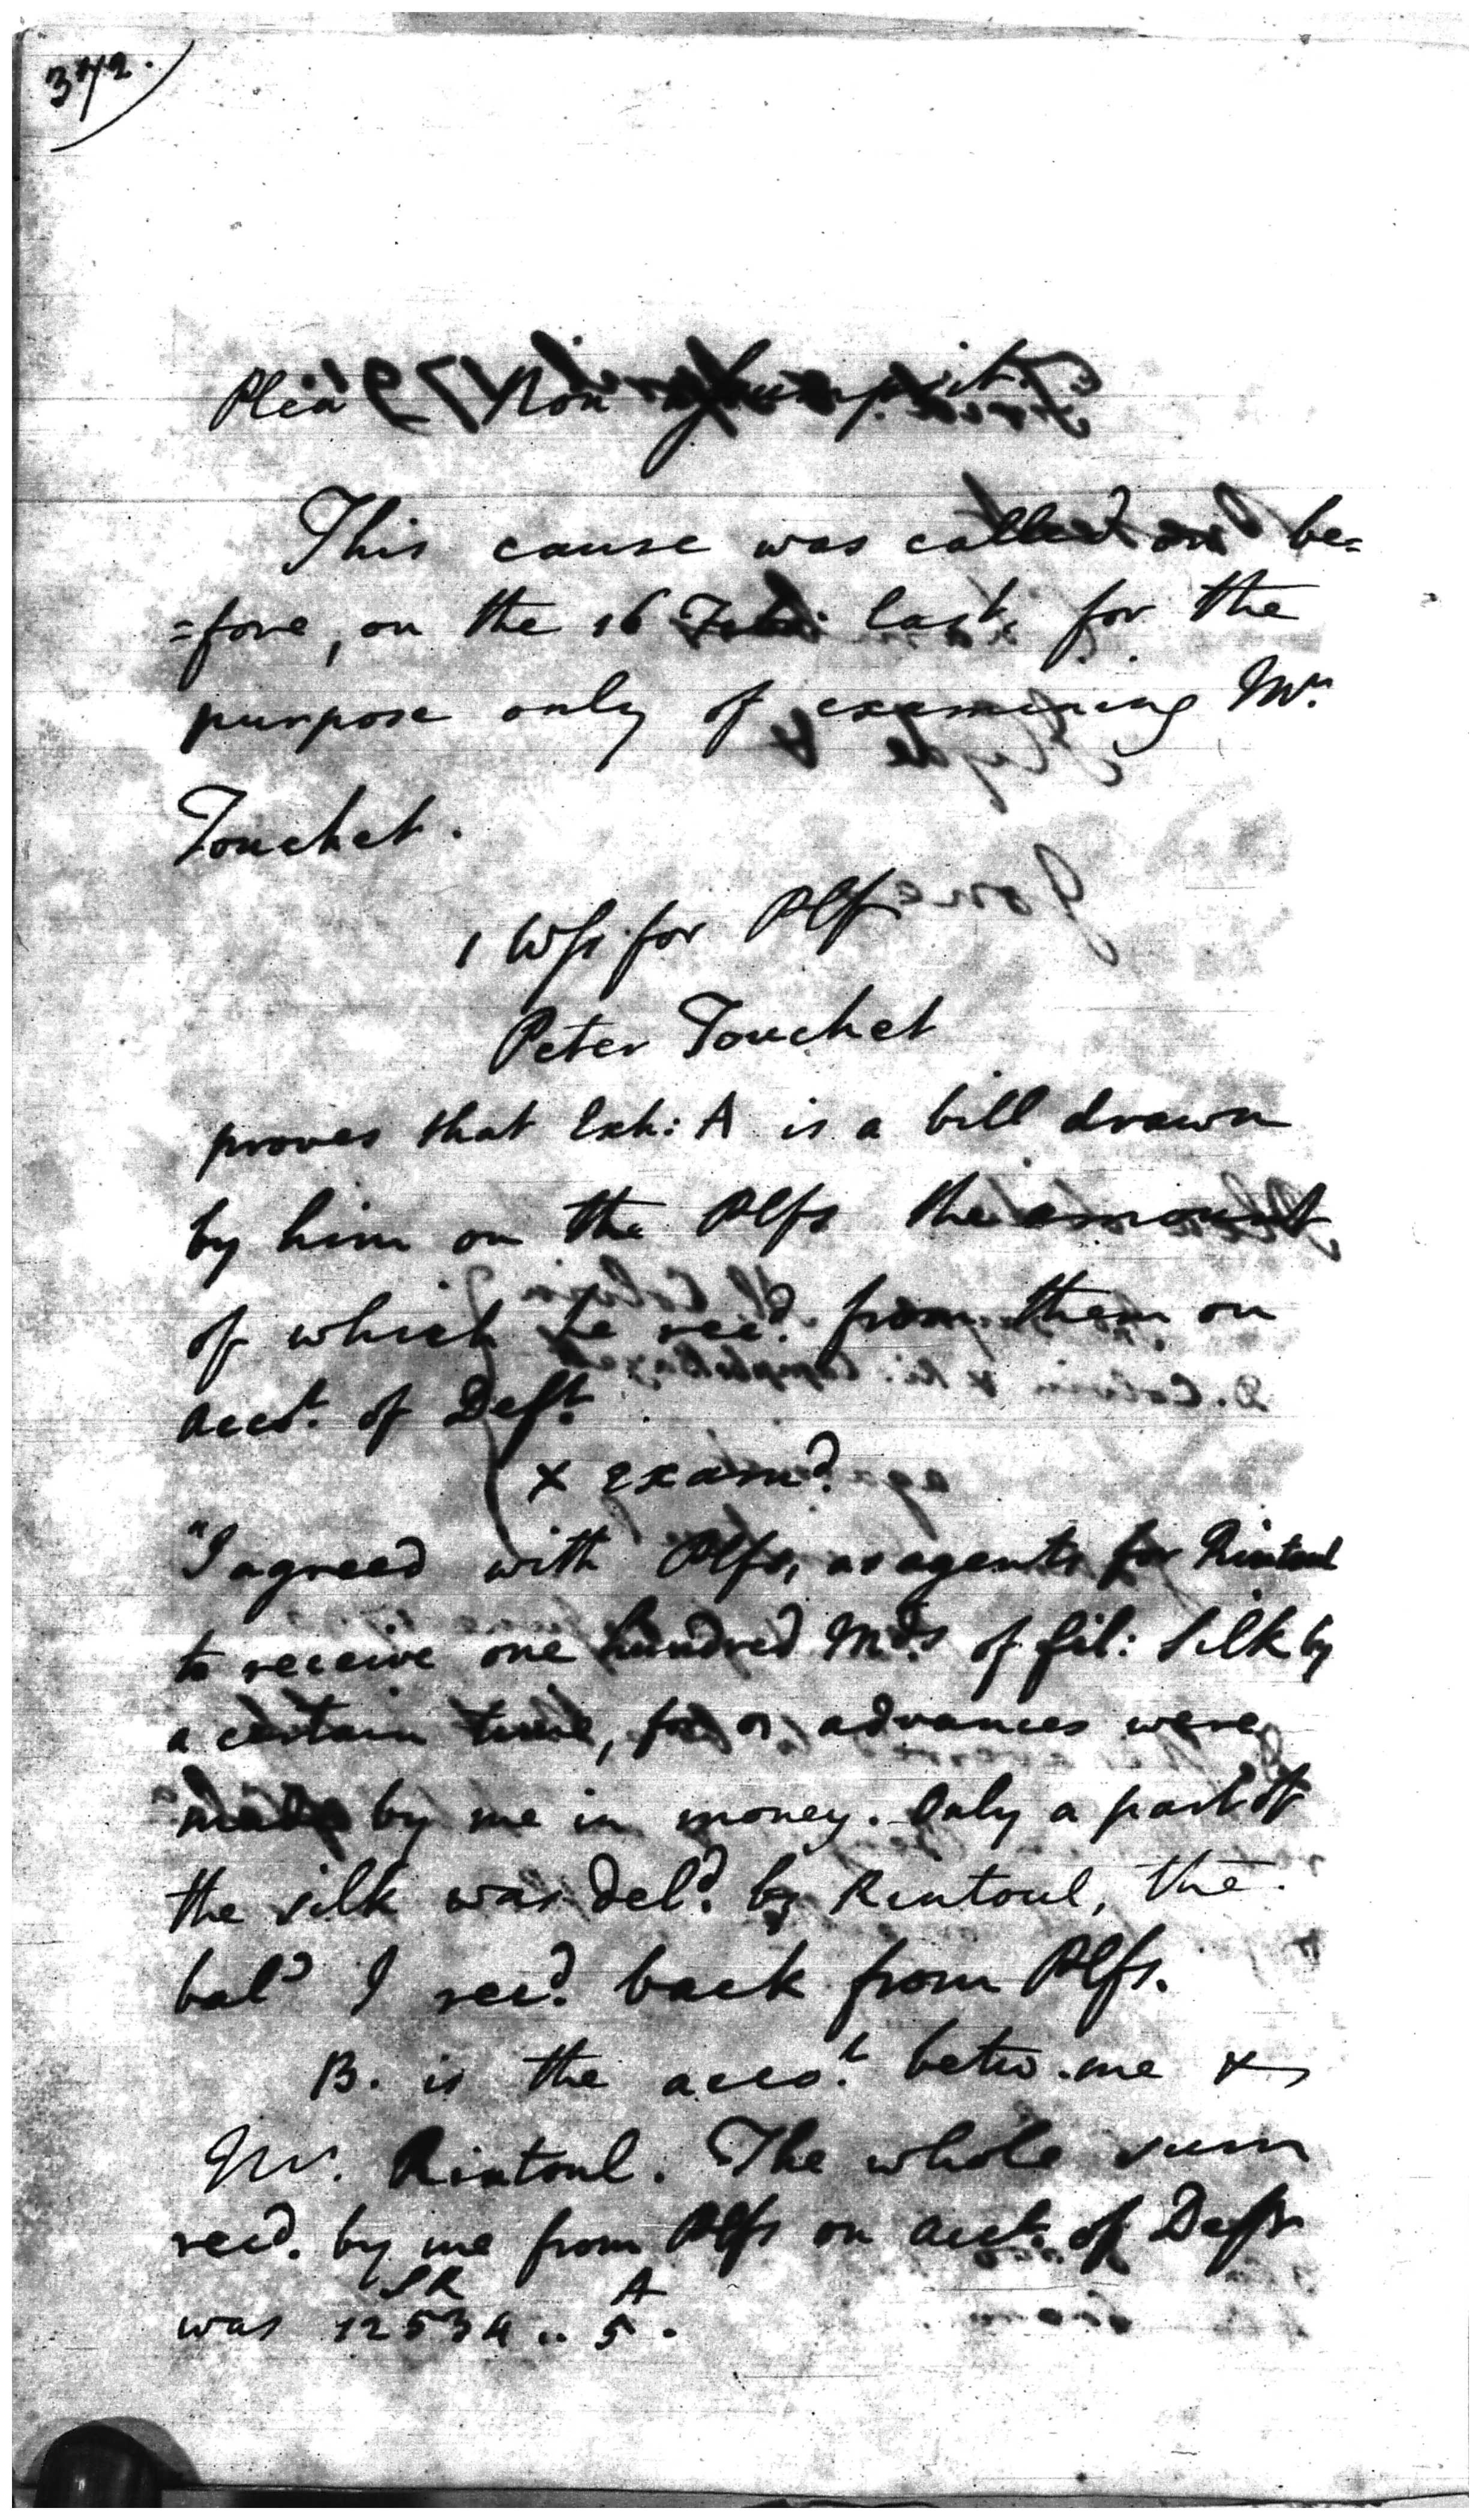 372.
Plea Non assumpsit.
This cause was called on be=
=fore, on the 16 Feb: last, for the
purpose only of examining Mr.
Touchet.
1 Wss for Plfs
Peter Touchet
proves that Exh: A is a bill drawn
by him on the Plfs the amount
of which he recd. from them on
acct. of Deft.
x examd.
"I agreed with Plfs, as agents for Rintoul
to receive one hundred Mds. of fil: silk by
a certain time, for advances were
"made by me in money. Only a part of
the silk was deld. by Rintoul, the
bal I recd. back from Plfs.
B. is the accot. betw. me &
Mr. Rintoul. The whole sum
recd. by me from Plfs on acct. of Deft
SR A
was 12534 .. 5.